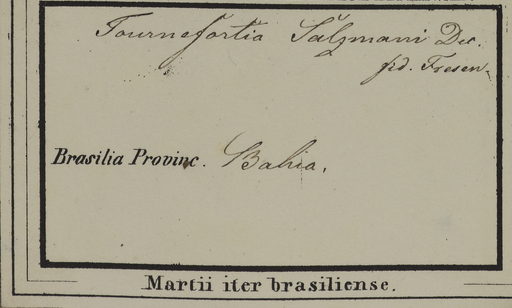 Tournefortia Salzmani Dec.
fid. Fresen.
Brasilia Provinc. Bahia.
Martii iter brasiliense.